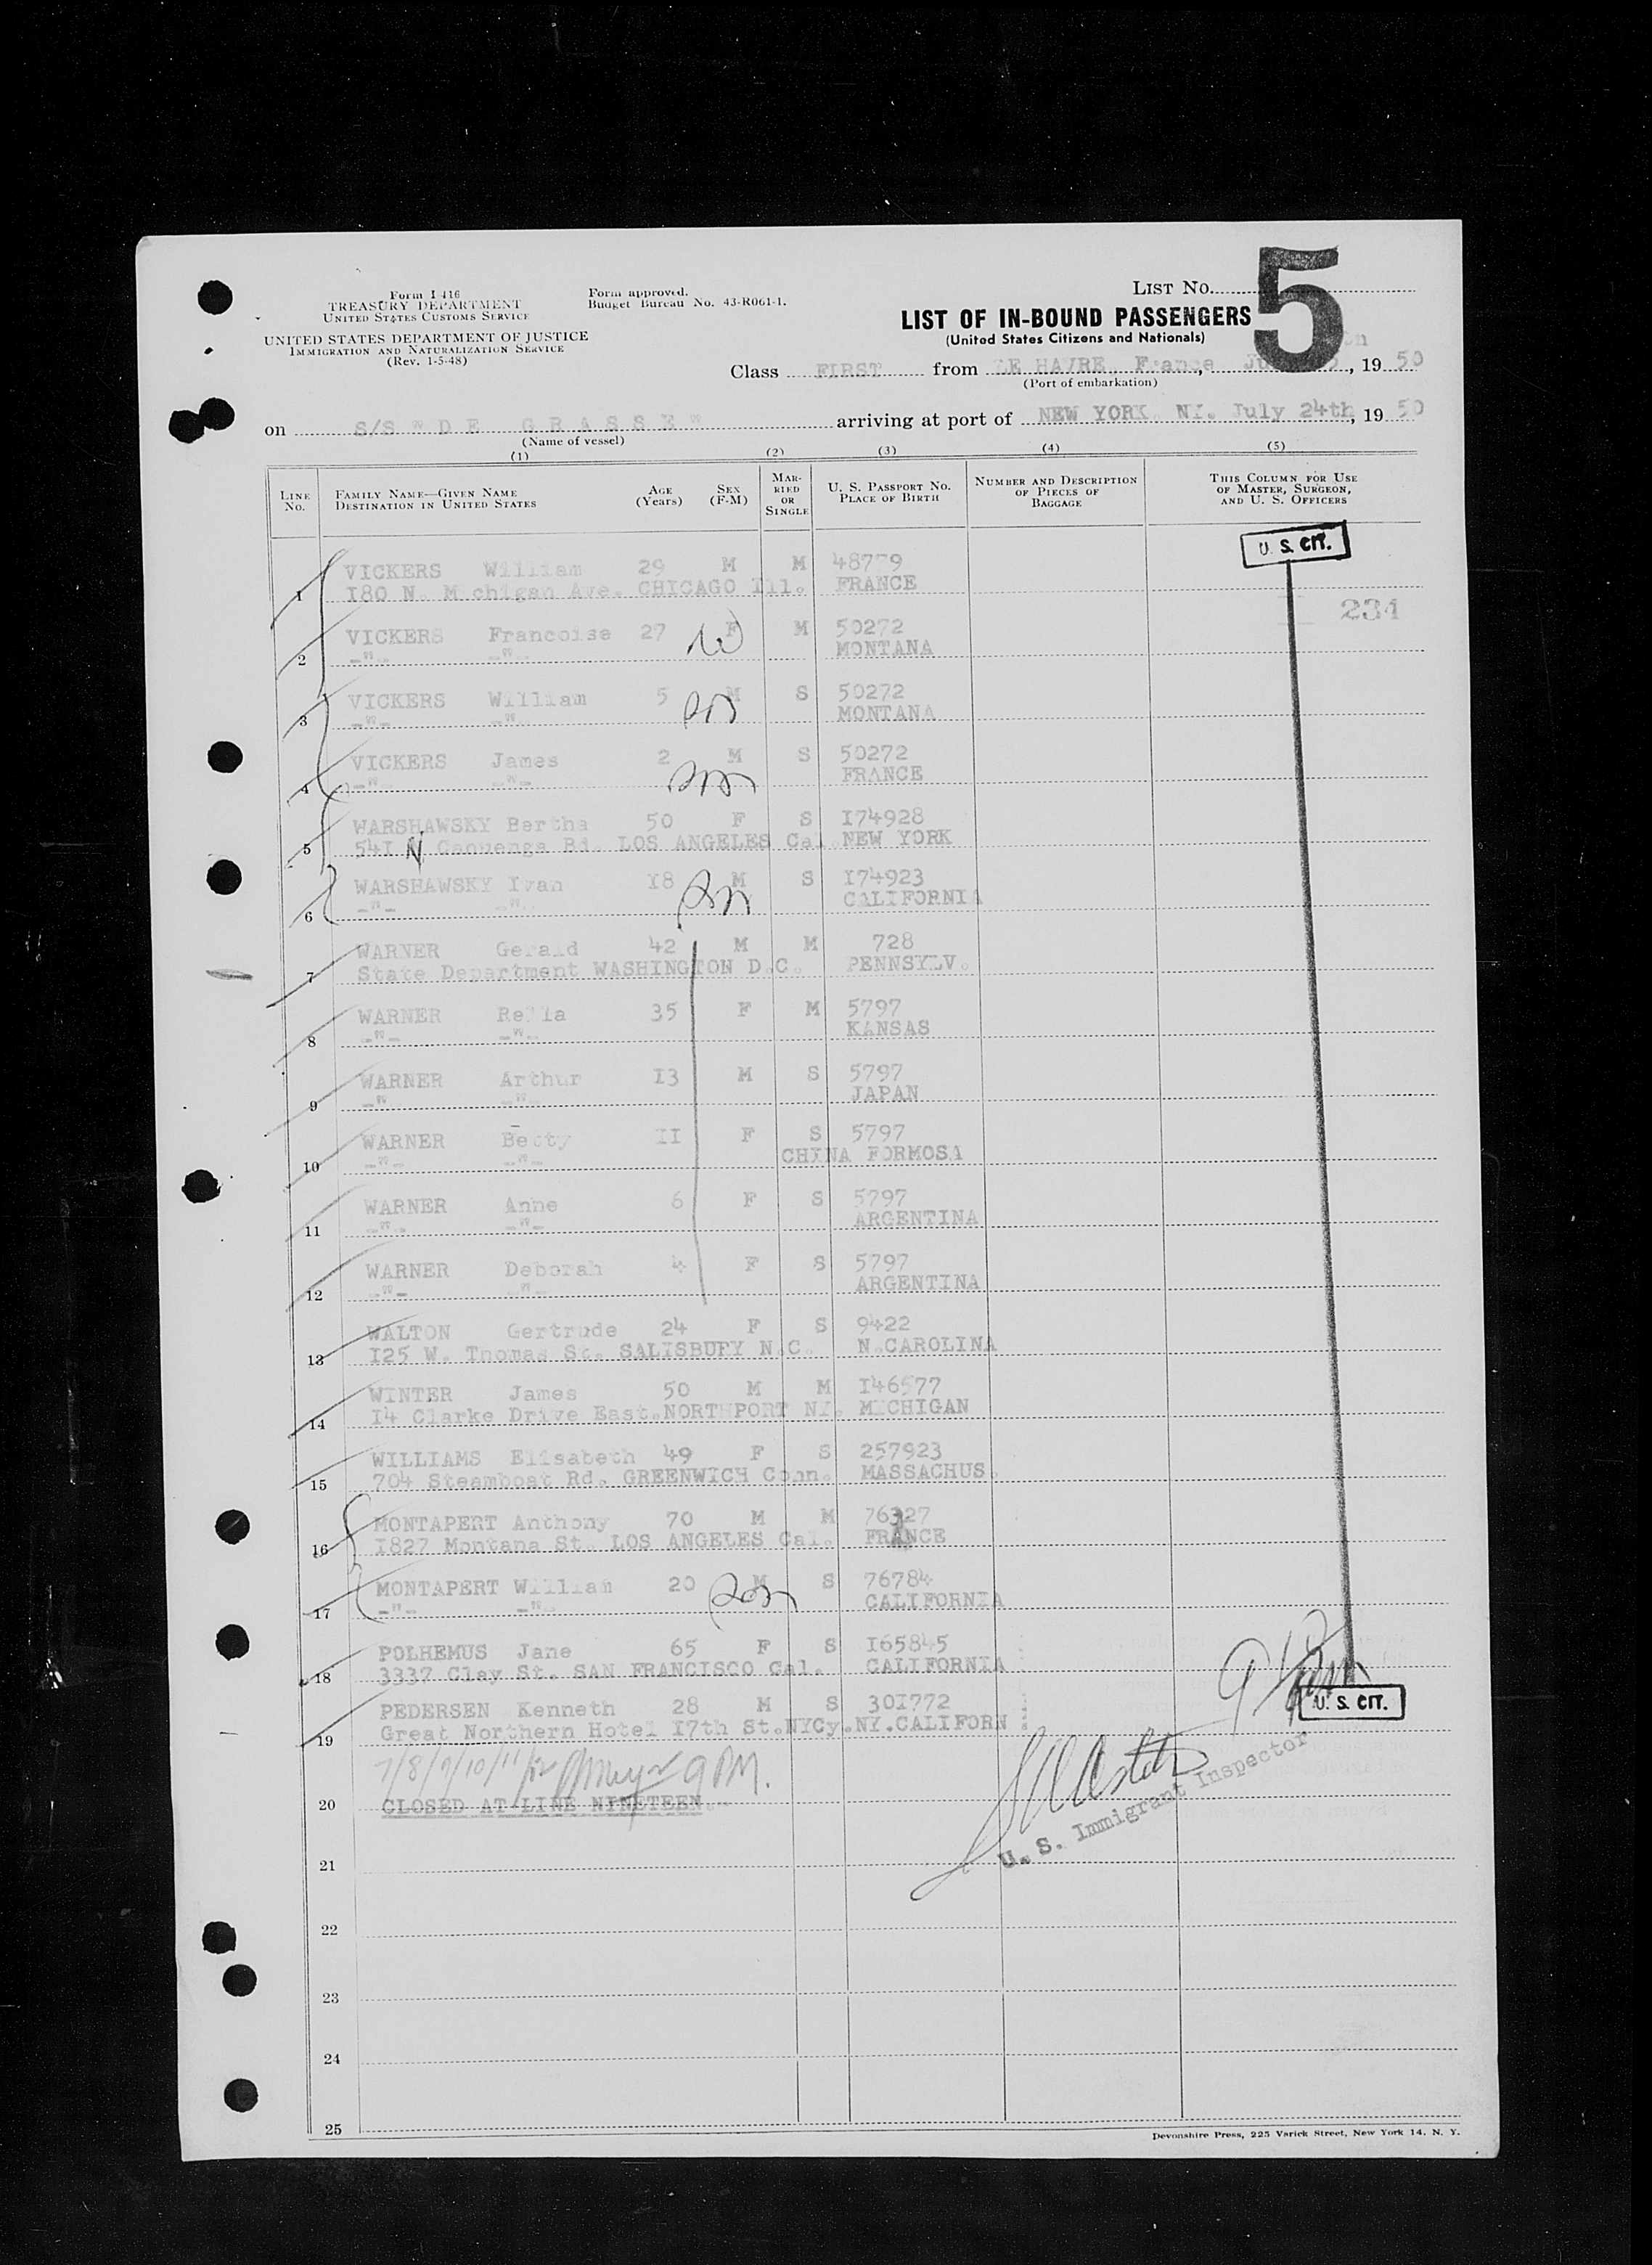 Form I 416
TREASURY DEPARTMENT
UNITED STATES CUSTOMS SERVICE
UNITED STATES DEPARTMENT OF JUSTICE
IMMIGRATION AND NATURALIZATION SERVICE
(Rev. 1-5-48)
Form approved.
Budget Bureau No. 43-R061-1.
LIST No. 5
LIST OF IN-BOUND PASSENGERS
(United States Citizens and Nationals)
Class FIRST from LE HAVRE, France, , 19 50
(Port of embarkation)
on S/S "DE GRASSE" arriving at port of NEW YORK. NY. July 24th, 19 50
(Name of vessel)
(1) (2) (3) (4) (5)
LINE No. FAMILY NAME—GIVEN NAME DESTINATION IN UNITED STATES AGE (Years) SEX (F-M) MARRIED OR SINGLE U. S. PASSPORT No. PLACE OF BIRTH NUMBER AND DESCRIPTION OF PIECES OF BAGGAGE THIS COLUMN FOR USE OF MASTER, SURGEON, AND U. S. OFFICERS
U. S. CIT.
VICKERS William 29 M M 48779
1 I80 N. Michigan Ave. CHICAGO Ill. FRANCE
234
VICKERS Francoise 27 F M 50272
2 -"- -"- MONTANA
VICKERS William 5 M S 50272
3 -"- -"- MONTANA
VICKERS James 2 M S 50272
4 -"- -"- FRANCE
WARSHAWSKY Bertha 50 F S I74928
5 54I N Cahuenga Bd. LOS ANGELES Cal. NEW YORK
WARSHAWSKY Ivan I8 M S I74923
6 -"- -"- CALIFORNIA
WARNER Gerald 42 M M 728
7 State Department WASHINGTON D.C. PENNSYLV.
WARNER Rella 35 F M 5797
8 -"- -"- KANSAS
WARNER Arthur I3 M S 5797
9 -"- -"- JAPAN
WARNER Betty II F S 5797
10 -"- -"- CHINA FORMOSA
WARNER Anne 6 F S 5797
11 -"- -"- ARGENTINA
WARNER Deborah 4 F S 5797
12 -"- -"- ARGENTINA
WALTON Gertrude 24 F S 9422
13 I25 W. Thomas St. SALISBURY N.C. N.CAROLINA
WINTER James 50 M M I46577
14 I4 Clarke Drive East.NORTHPORT NY. MICHIGAN
WILLIAMS Elisabeth 49 F S 257923
15 704 Steamboat Rd. GREENWICH Conn. MASSACHUS.
MONTAPERT Anthony 70 M M 76327
16 I827 Montana St. LOS ANGELES Cal. FRANCE
MONTAPERT William 20 M S 76784
17 -"- -"- CALIFORNIA
POLHEMUS Jane 65 F S I65845
18 3337 Clay St. SAN FRANCISCO Cal. CALIFORNIA
PEDERSEN Kenneth 28 M S 30I772
19 Great Northern Hotel I7th St.NYCy.NY.CALIFORN
U. S. CIT.
7/8/9/10/11/12
20 CLOSED AT LINE NINETEEN
U. S. Immigrant Inspector
21
22
23
24
25
Devonshire Press, 225 Varick Street, New York 14, N. Y.